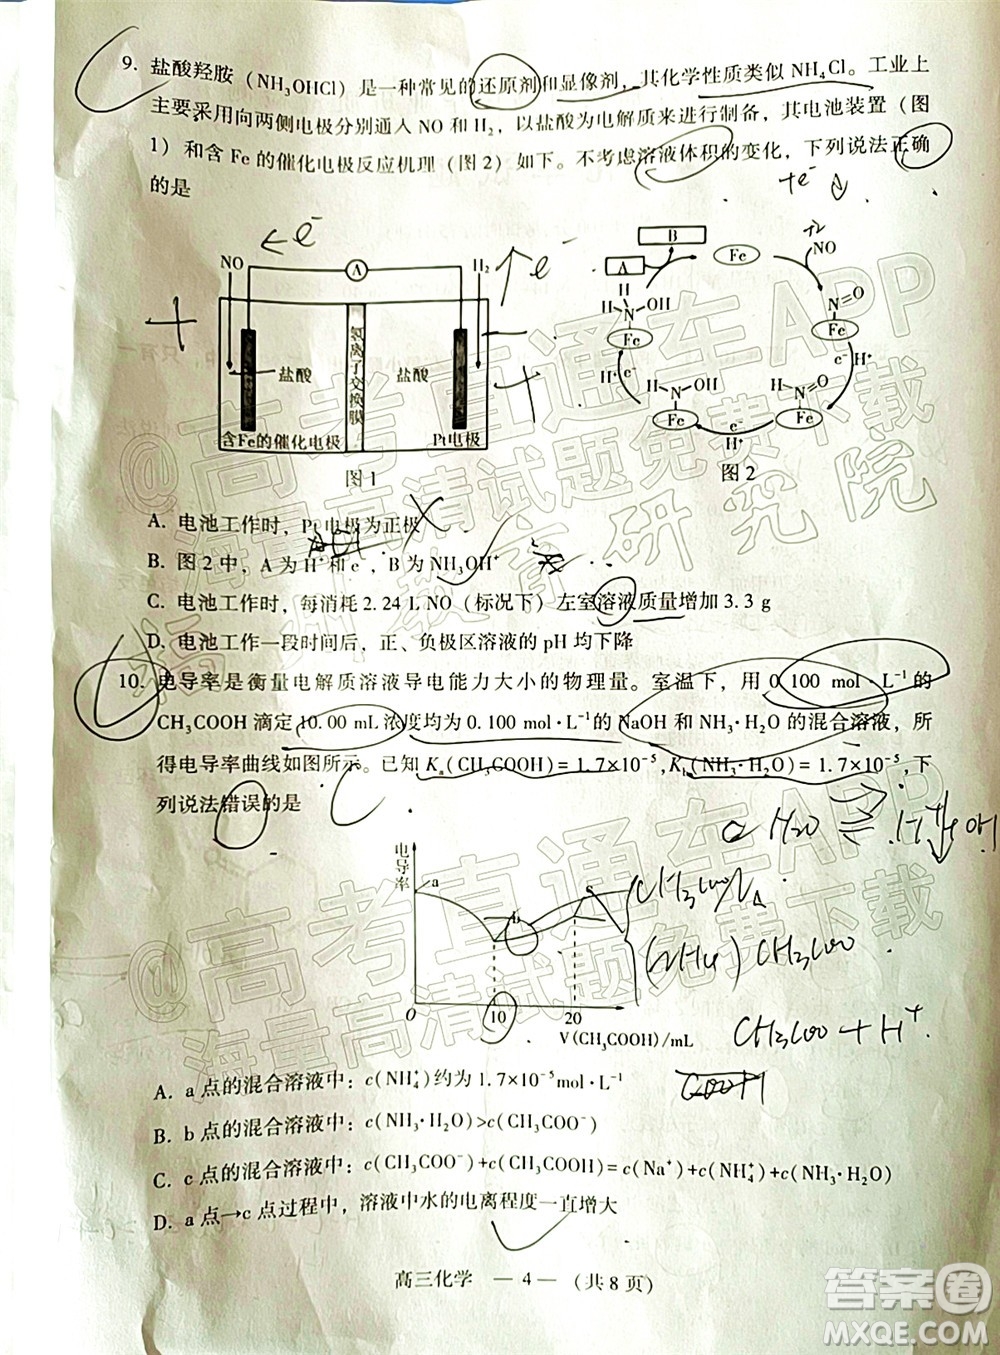 9. 盐酸羟胺（NH₃OHCl）是一种常见的还原剂和显像剂，其化学性质类似NH₄Cl。工业上
主要采用向两侧电极分别通入NO和H₂，以盐酸为电解质来进行制备，其电池装置（图
1）和含Fe的催化电极反应机理（图2）如下。不考虑溶液体积的变化，下列说法正确
的是
+e⁻
← e⁻
e⁻
NO
A
H₂
+
盐酸
氢离子交换膜
盐酸
含Fe的催化电极
Pt电极
图1
B
A
Fe
NO
H
N-OH
Fe
N=O
Fe
H⁺
e⁻
H⁺
H
N-OH
Fe
e⁻
H⁺
H
N=O
Fe
图2
A. 电池工作时，Pt电极为正极
B. 图2中，A为H⁺和e⁻，B为NH₃OH⁺
C. 电池工作时，每消耗2.24 L NO（标况下）左室溶液质量增加3.3 g
D. 电池工作一段时间后，正、负极区溶液的pH均下降
10. 电导率是衡量电解质溶液导电能力大小的物理量。室温下，用0.100 mol·L⁻¹的
CH₃COOH滴定10.00 mL浓度均为0.100 mol·L⁻¹的NaOH和NH₃·H₂O的混合溶液，所
得电导率曲线如图所示。已知Kₐ(CH₃COOH)=1.7×10⁻⁵,K_b(NH₃·H₂O)=1.7×10⁻⁵,下
列说法错误的是
H₂O ⇌ H⁺
OH
电导率
a
b
c
0
10
20
V(CH₃COOH)/mL
CH₃COONa
CH₃COO
CH₃COO + H⁺
A. a点的混合溶液中：c(NH₄⁺)约为1.7×10⁻⁵mol·L⁻¹
B. b点的混合溶液中：c(NH₃·H₂O)>c(CH₃COO⁻)
C. c点的混合溶液中：c(CH₃COO⁻)+c(CH₃COOH)=c(Na⁺)+c(NH₄⁺)+c(NH₃·H₂O)
D. a点→c点过程中，溶液中水的电离程度一直增大
高三化学 — 4 — （共8页）
@高考直通车APP
海量高清试题免费下载
@高考直通车APP
海量高清试题免费下载
福州教育研究院
答案圈
MXQE.COM